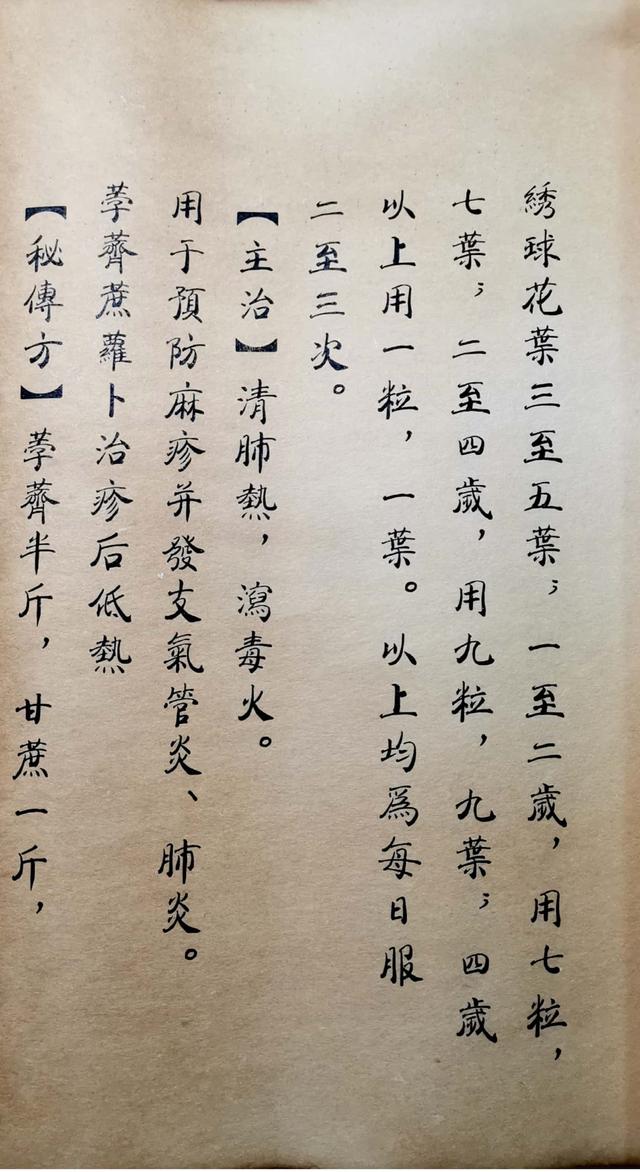 綉球花葉三至五葉；一至二歲，用七粒，
七葉；二至四歲，用九粒，九葉；四歲
以上用一粒，一葉。以上均爲每日服
二至三次。
【主治】清肺熱，瀉毒火。
用于預防麻疹并發支氣管炎、肺炎。
荸薺蔗蘿卜治疹后低熱
【秘傳方】荸薺半斤，甘蔗一斤，